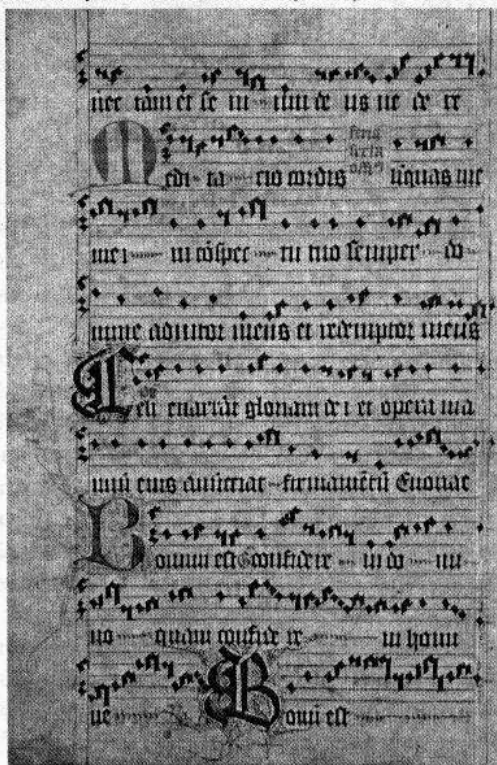 nec tam et se in im de us ne de re
Medi ta cio cordis feria sexta ne
mei in cōspec tu tuo semper do
mine adiutor meus et redemptor meus
Celi enarrāt gloriam dei et opera ma
nuū eius anūctiat firmamētū Euouae
Bonum est confidere in do mi
no quam confide re in homi
ne Bonū est